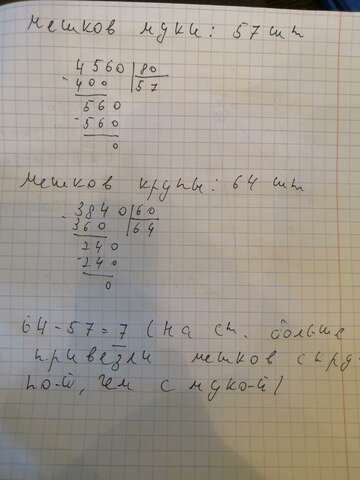 мешков муки: 57 шт
4560 80
- 400 57
560
- 560
0
мешков крупы: 64 шт
- 3840 60
360 64
240
- 240
0
64-57=7 (на ст. больше
привезли мешков с круп-
по-й, чем с муко-й)